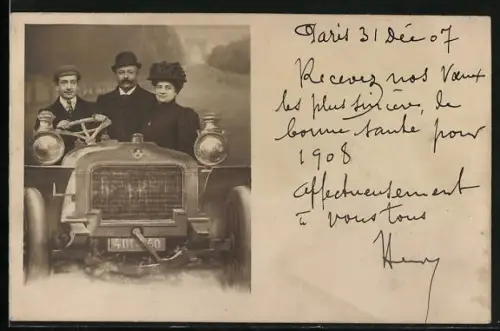 Paris 31 Déc 07
Recevez nos Vœux
les plus sincères, de
bonne santé pour
1908
affectueusement
à vous tous
Henry